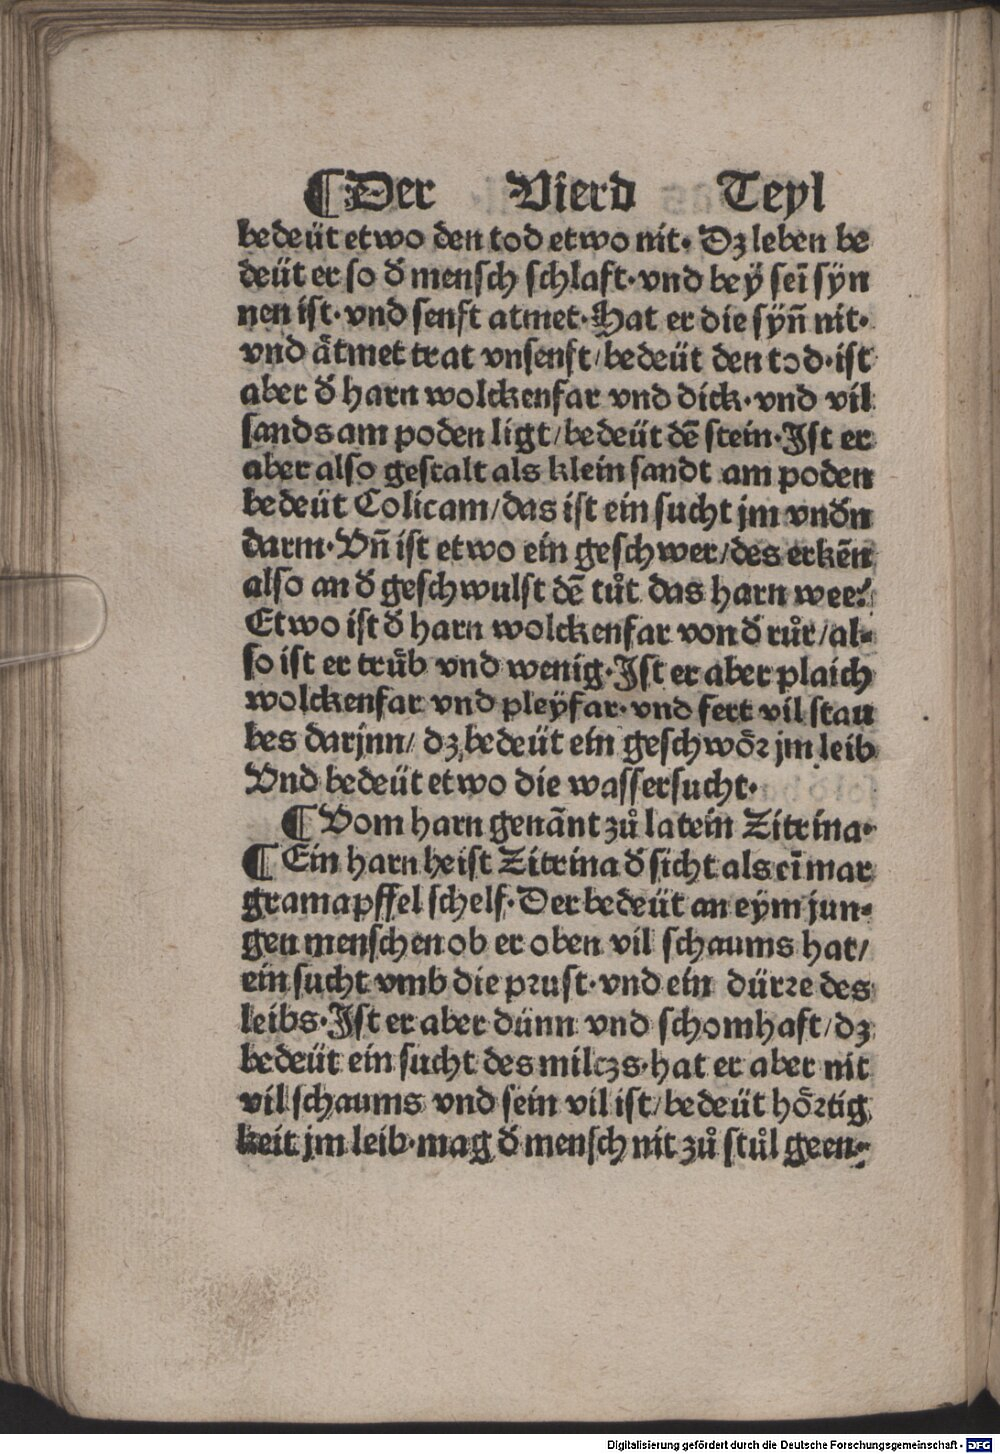 ¶Der Vierd Teyl
bedeüt etwo den tod etwo nit· Dz leben be
deüt er so d̕ mensch schlaft· vnd bey̋ seī sÿn
nen ist· vnd senft atmet· Hat er die sÿn̄ nit·
vnd ätmet trat vnsenft/ bedeüt den tod· ist
aber d̕ harn wolckenfar vnd dick· vnd vil
sands am poden ligt/ bedeüt dē stein· Ist er
aber also gestalt als klein sandt am poden
bedeüt Colicam/ das ist ein sucht jm vnd̕n
darm· Vn̄ ist etwo ein geschwer/ des erkēn
also an d̕ geschwulst dē tuͦt das harn wee:
Etwo ist d̕ harn wolckenfar von d̕ ruͦr/ al⸗
so ist er truͤb vnd wenig· Ist er aber plaich
wolckenfar vnd pleÿfar· vnd fert vil stau
bes darjnn/ dz bedeüt ein geschwoͤꝛ jm leib
Vnd bedeüt etwo die wassersucht·
¶ Vom harn genān̄t zuͦ latein Zitrina·
¶ Ein harn heist Zitrina d̕ sicht als eī mar
gramapffel schelf· Der bedeüt an eÿm jun⸗
gen menschen ob er oben vil schaums hat/
ein sucht vmb die pꝛust· vnd ein dürꝛe des
leibs· Ist er aber dünn vnd schomhaft/ dz
bedeüt ein sucht des milczs· hat er aber nit
vil schaums vnd sein vil ist/ bedeüt hoͤꝛtig
keit jm leib· mag d̕ mensch nit zuͦ stuͦl geen·
Digitalisierung gefördert durch die Deutsche Forschungsgemeinschaft - DFG